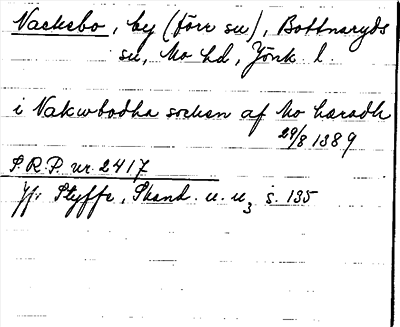 Nackebo, by (förr sn), Bottnaryds
sn, Mo hd, Jönk. l.
i Nakwbodha sochen af Mo hæradh
29/8 1389
S.R.P. nr. 2417
Jfr Styffe, Skand. u. u3 s. 135